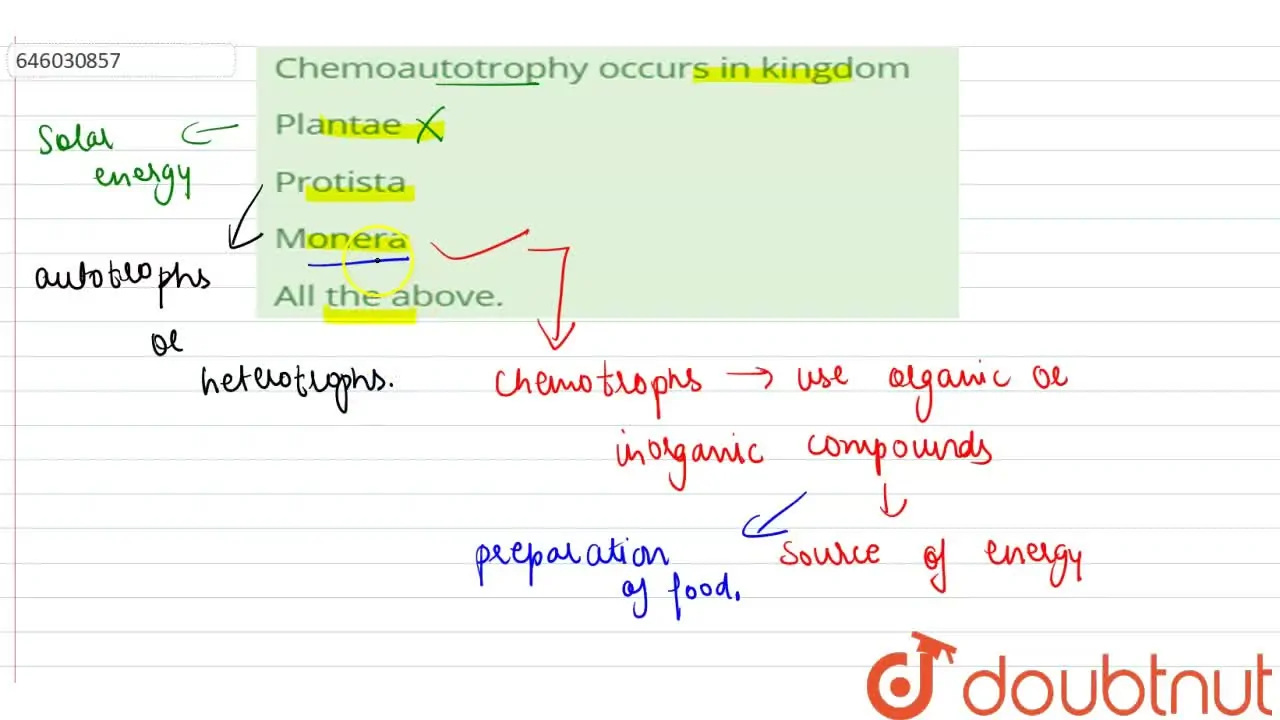 646030857
Chemoautotrophy occurs in kingdom
Plantae X
Protista
Monera
All the above.
Solar
energy
autotrophs
or
heterotrophs.
Chemotrophs → use organic or
inorganic compounds
preparation
of food.
source of energy
doubtnut